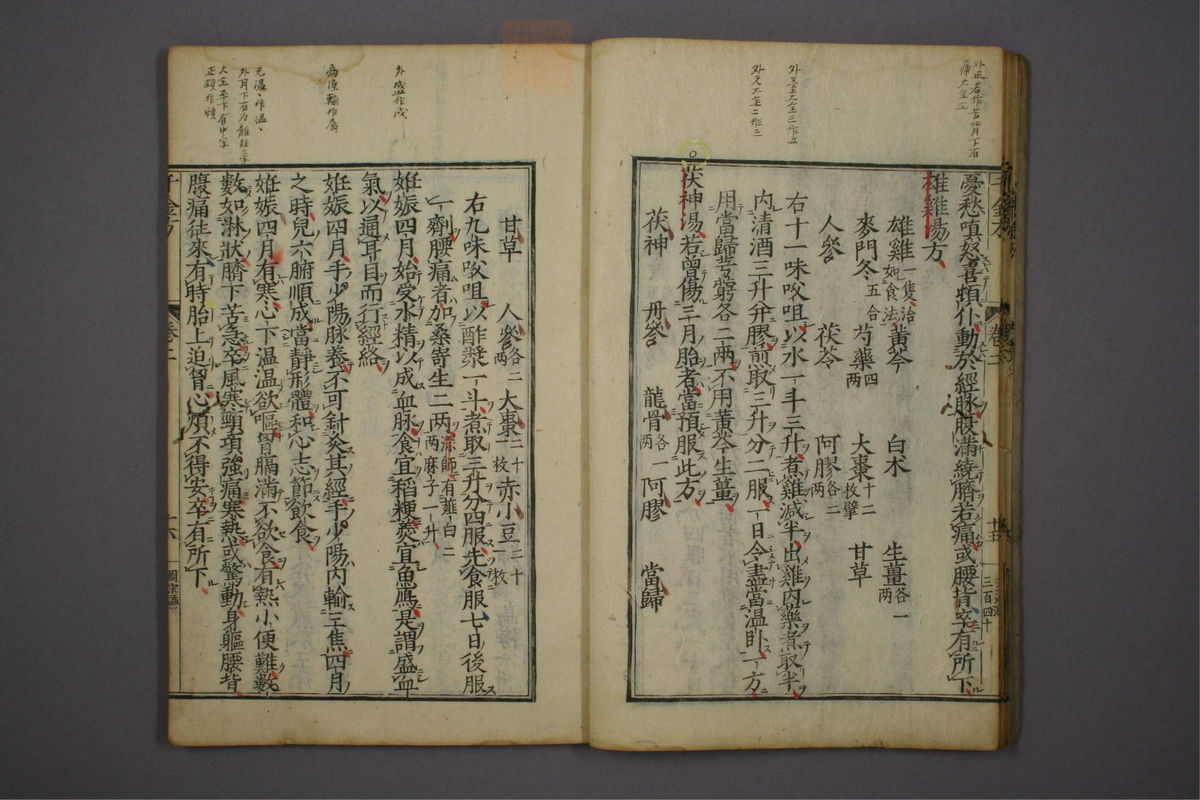 憂愁嗔怒喜頓仆動於經脉腹滿繞臍苦痛或腰背卒有所下
雄雞湯方
雄雞一隻治如食法 黃芩 白朮 生薑各一兩
麥門冬五合 芍藥四兩 大棗十二枚擘 甘草
人參 茯苓 阿膠各二兩
右十一味㕮咀以水一斗三升煮雞減半出雞內藥煮取半
內清酒三升并膠煎取三升分二服一日令盡當溫臥一方
用當歸芎藭各二兩不用黃芩生薑
茯神湯若曾傷三月胎者當預服此方
茯神 丹參 龍骨各一兩 阿膠 當歸
甘草 人參各二兩 大棗二十一枚 赤小豆二十一枚
右九味㕮咀以酢漿一斗煮取三升分四服先食服七日後服
一劑腰痛者加桑寄生二兩深師有薤白二兩麻子一升
妊娠四月始受水精以成血脉食宜稻粳羹宜魚鴈是謂盛血
氣以通耳目而行經絡
妊娠四月手少陽脉養不可針灸其經手少陽內輸三焦四月
之時兒六腑順成當靜形體和心志節飲食
妊娠四月有寒心下溫溫欲嘔胷膈滿不欲食有熱小便難數
數如淋狀臍下苦急卒風寒頸項強痛寒熱或驚動身軀腰背
腹痛往來有時胎上迫胷心煩不得安卒有所下
千金方
卷二
十六